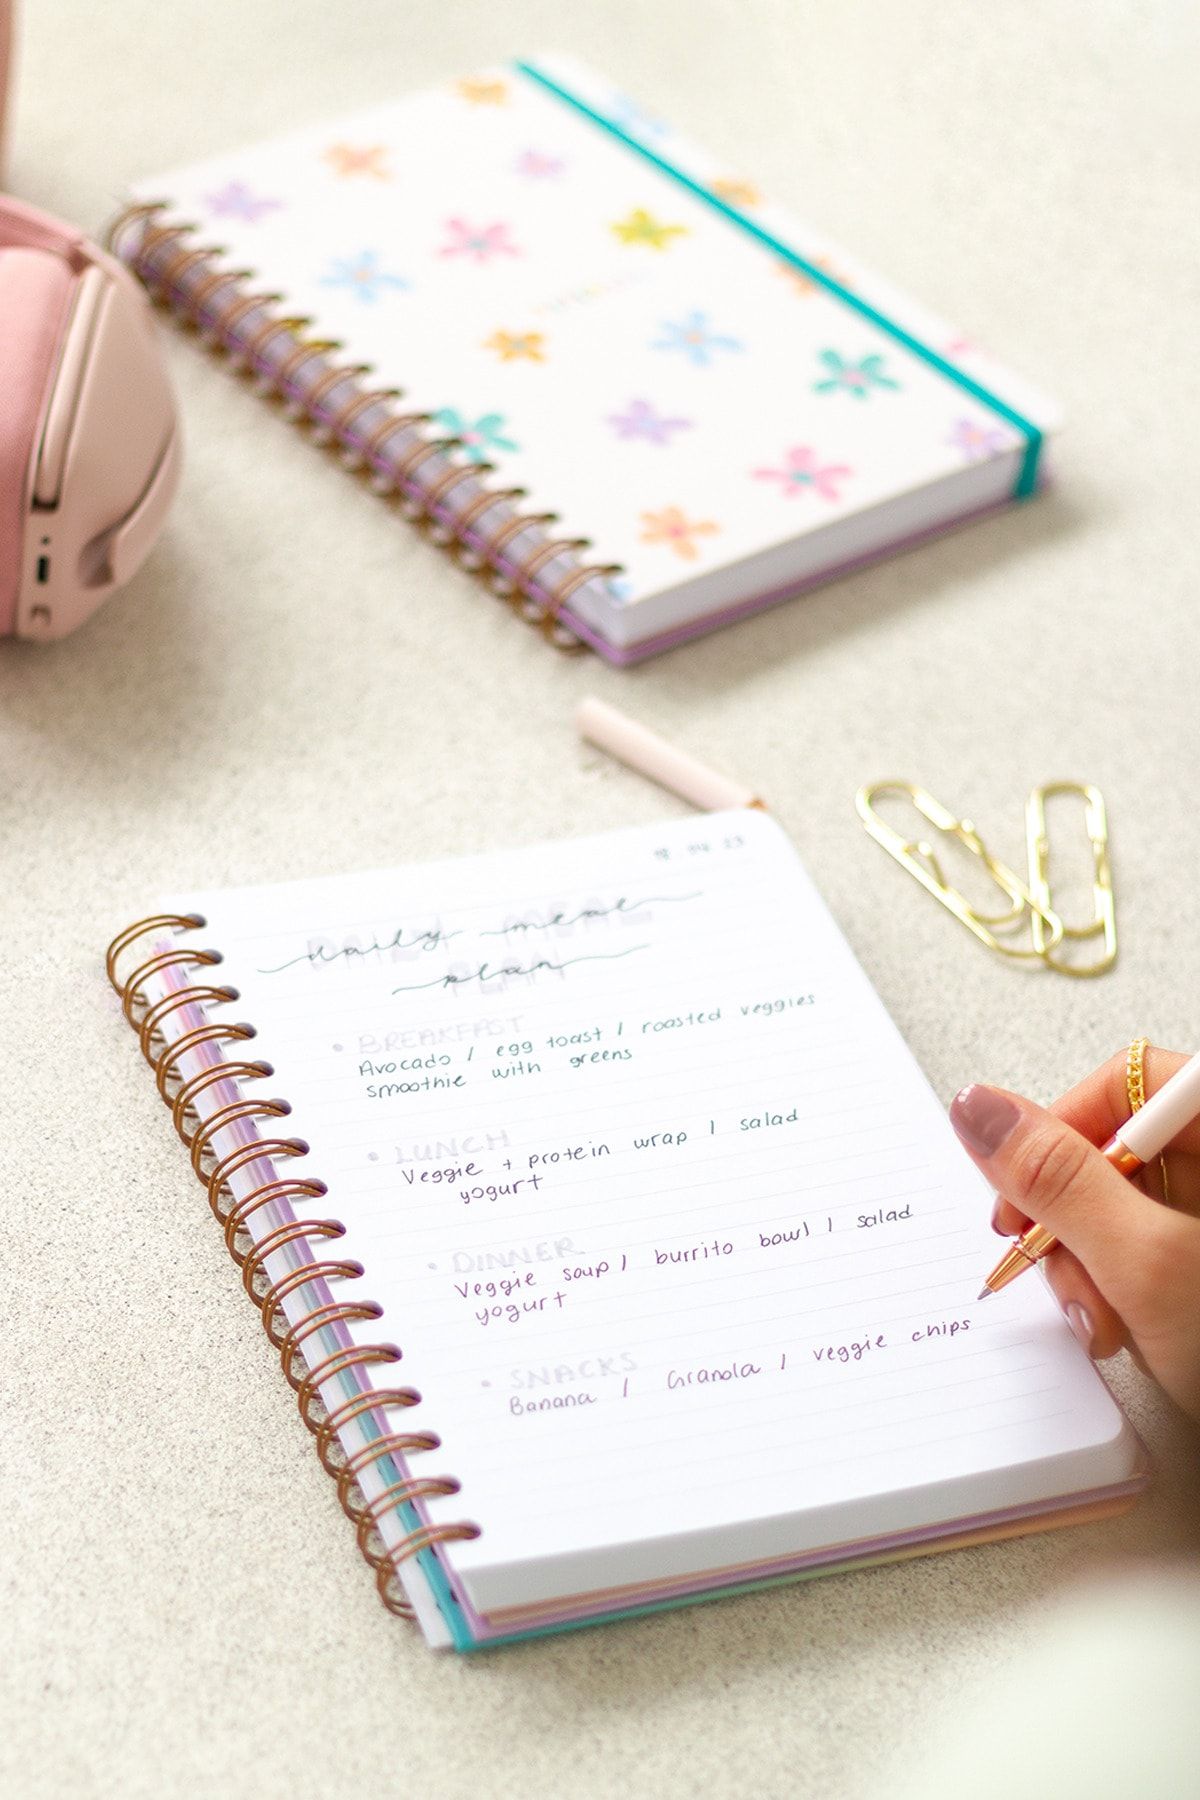 daily meal
plan
• BREAKFAST
Avocado / egg toast / roasted veggies
smoothie with greens
• LUNCH
Veggie + protein wrap / salad
yogurt
• DINNER
Veggie soup / burrito bowl / salad
yogurt
• SNACKS
Banana / Granola / veggie chips